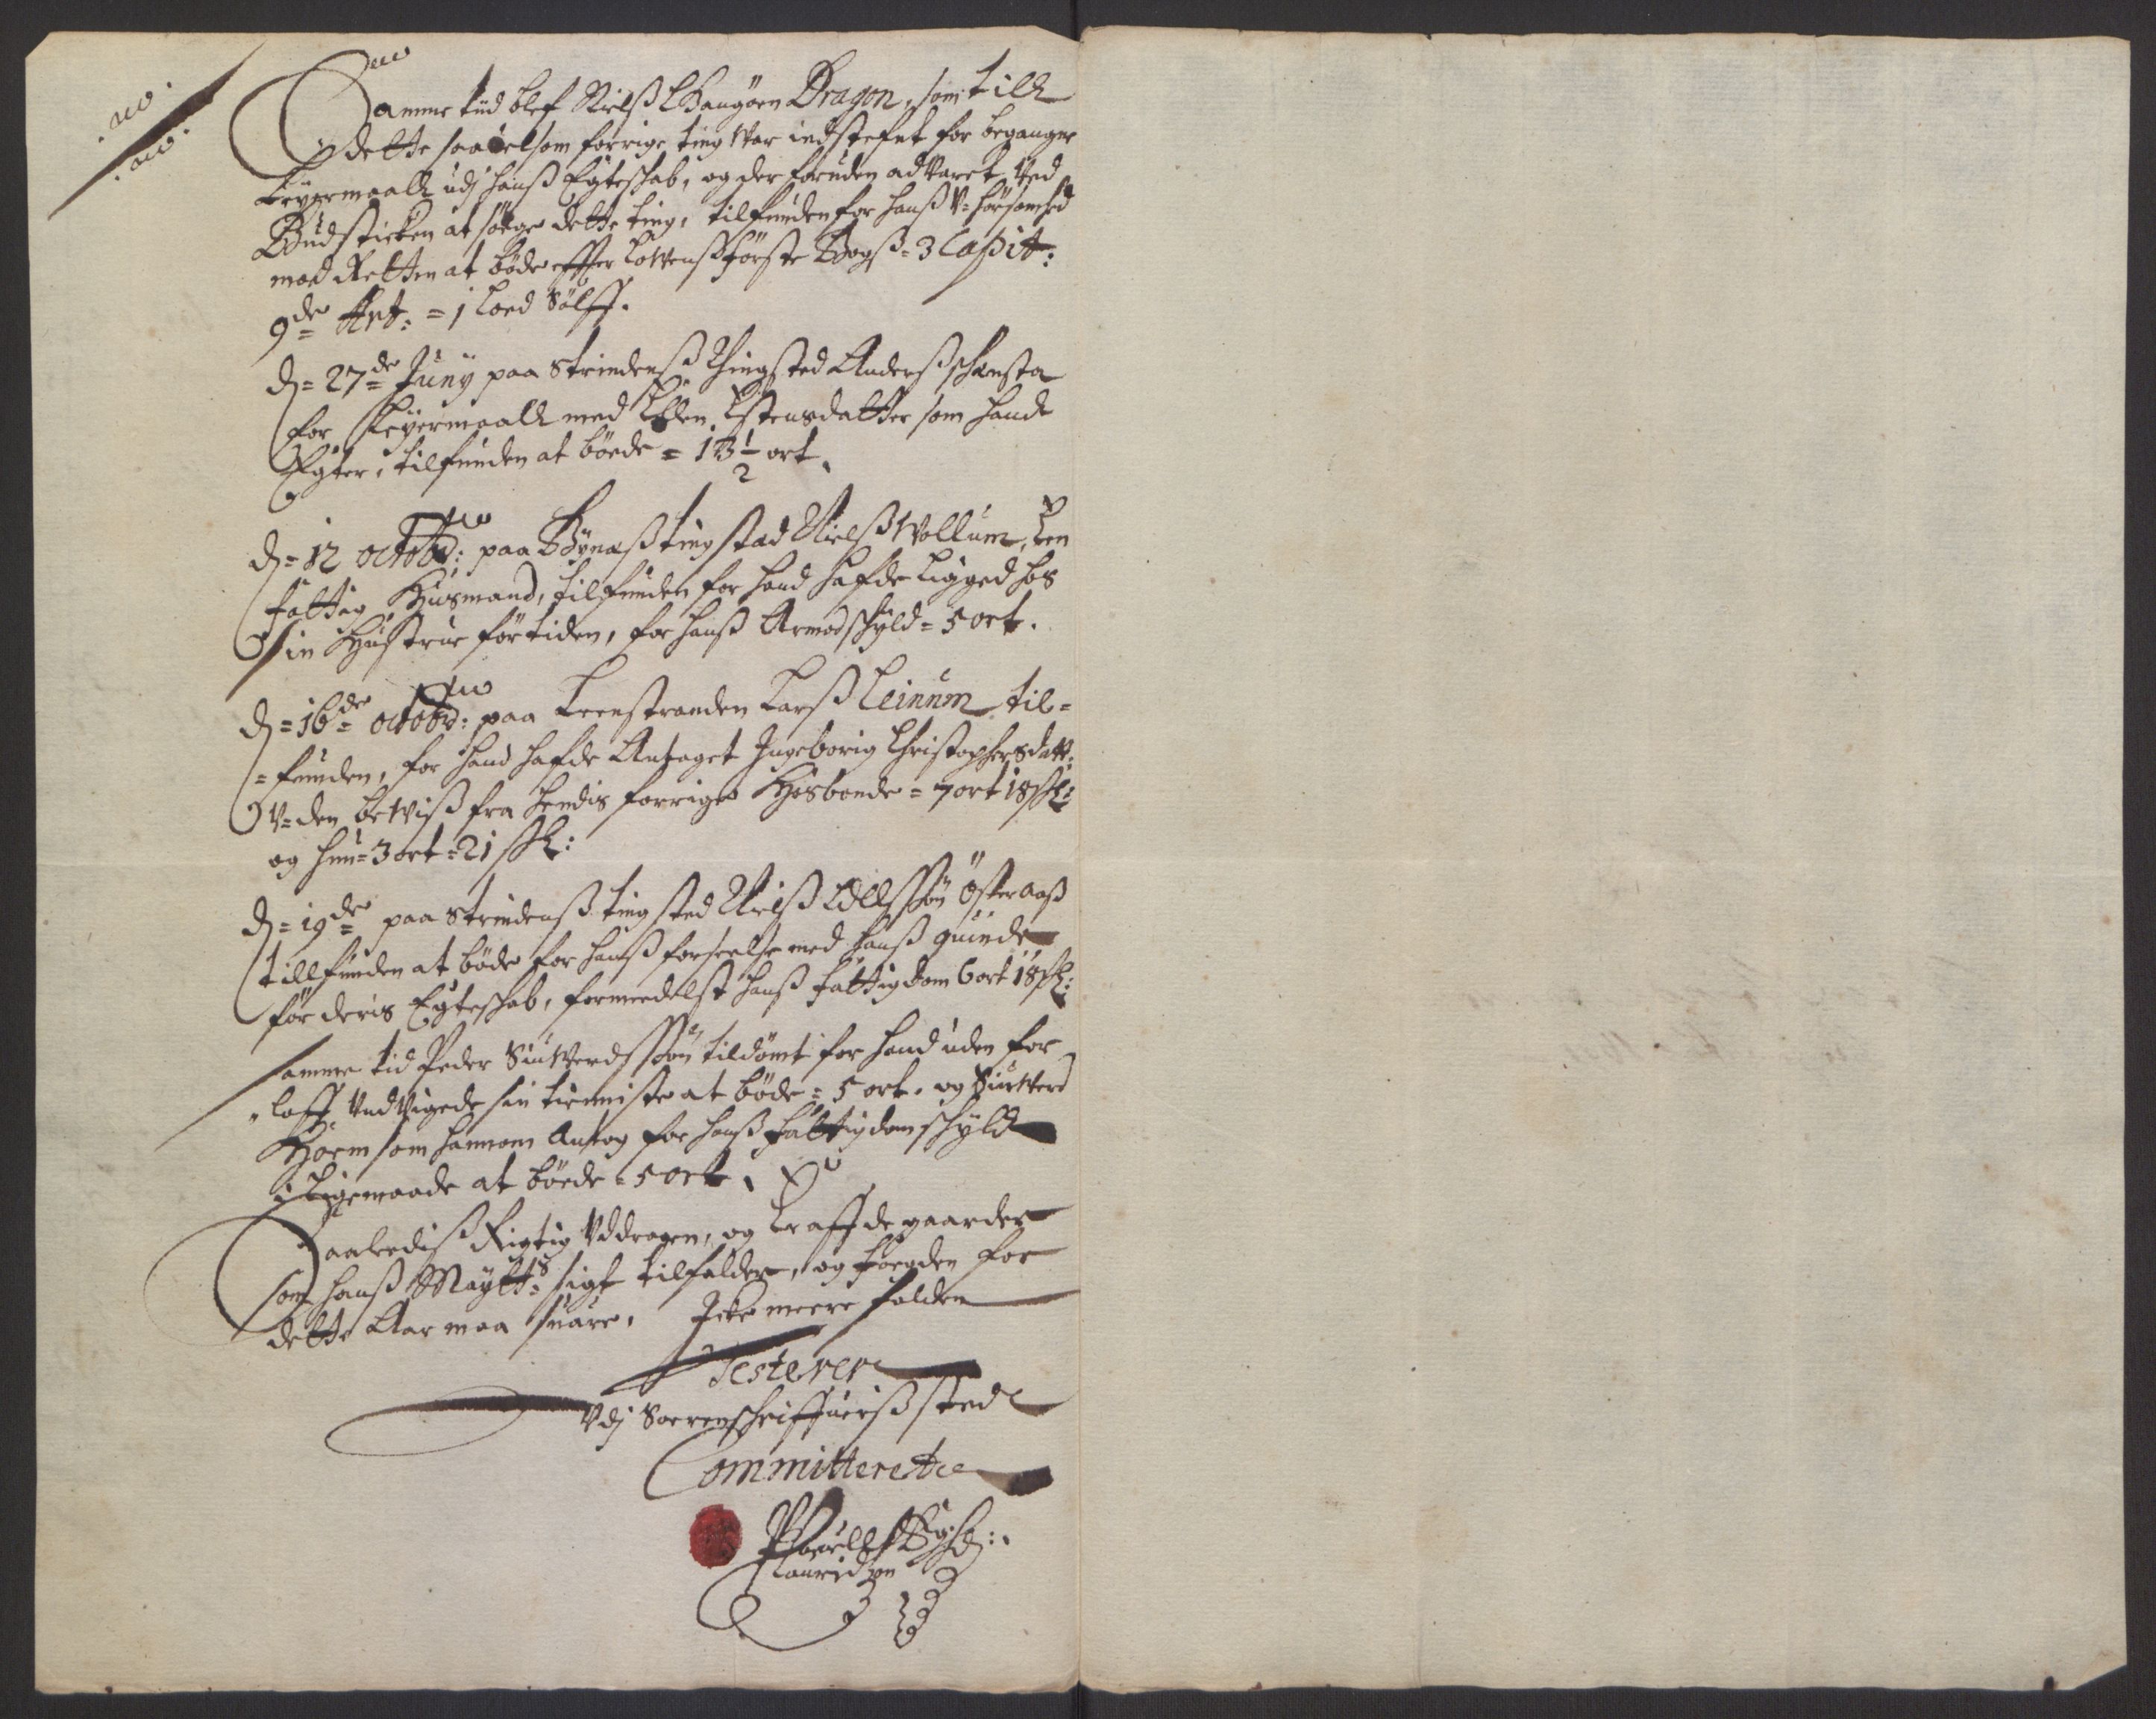 Samme tiid blef Nielß Dragon, som till
dette saa velsom forrige ting war indstefnt for begangne
Leyermaall udj hanß Egteschab, og der foruden adwaret wed
Budsticken at søege dette ting, tilfunden for hanß V=hørsomhed
mod Retten at bøde effter Lowenß Første Bogß = 3 Capit:
9de Art: = 1 Loed Sølff.
D= 27de Juny paa Strindenß Thingsted Anderß
for Leyermaall med Ellen Estensdatter som hand
Egter, tilfunden at böede = 13 1/2 ort.
D= 12 octobr: paa Bynæß tingstæd Nielß Wollum, Een
fattig Huusmand, tilfunden for hand hafde ligged hos
sin Hustrue før tiden, for hanß Armod schyld = 5 ort.
D= 16de octobr: paa Leenstranden Larß Leinum til=
=funden, for hand hafde Antaget Ingeborig Christophersdatt:
V=den bewiß fra hendis forrige Hosbonde = 7 ort 18 sk:
og hun = 3 ort = 21 sk:
D= 19de paa Strindenß tingsted Nielß Østeraaß
tillfunden at böde for hanß forseelse med hanß quinde
før deris Egteschab, formeedelst hanß fattigdom 6 ort 18 sk:
samme tid Peder Siuwerdssøn tildömt for hand uden for=
=loff undvigede sin tienniste at böde = 5 ort. og Siuwerd
Hoem som hannem Antog for hanß fattigdom schyld
i Ligemaade at böede = 5 ort.
Saaledis Rigtig Uddragen, og de gaarder
som hanß Maytts: sigt tilfalder, og fogden for
dette Aar maa suare, Icke meere falden
Testerer
Vdj Sorenschriffuerß sted
Committerette
Pouell
Lauridzen